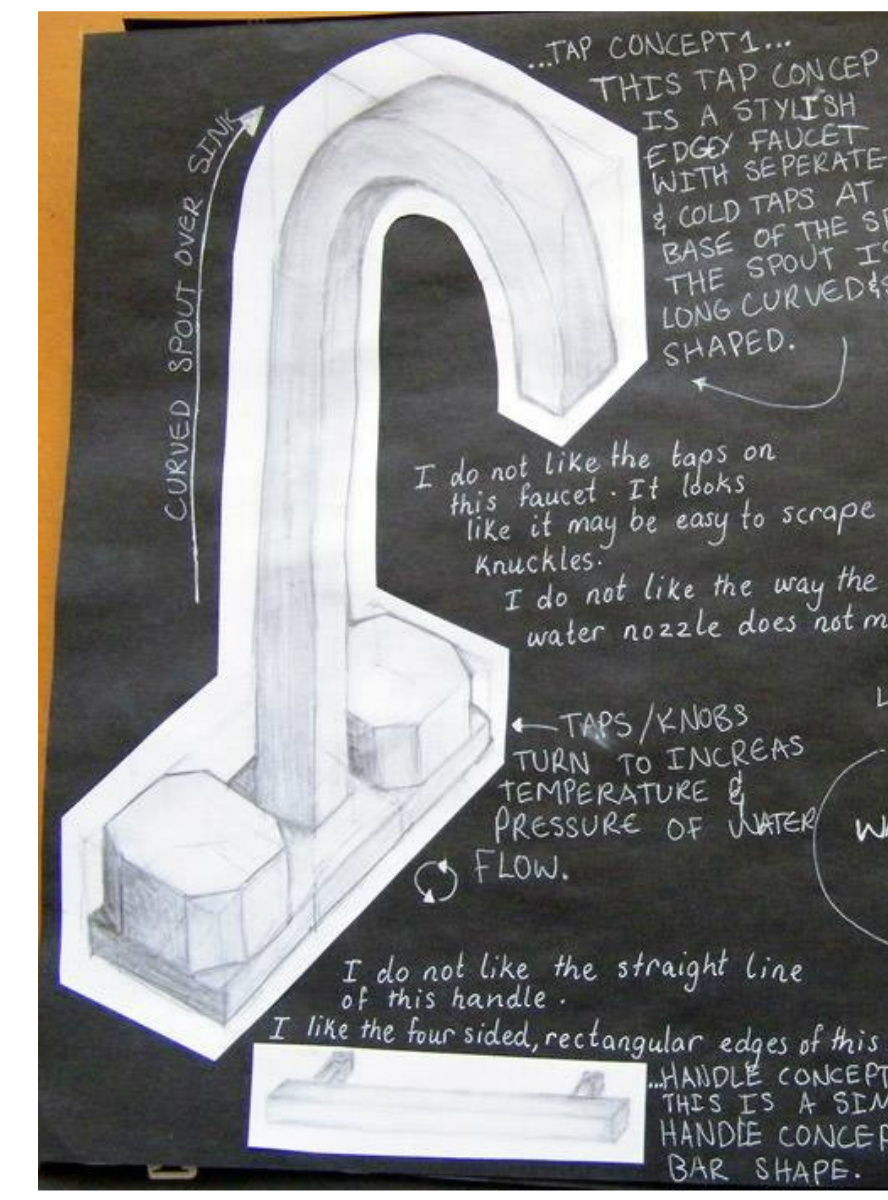 ...TAP CONCEPT 1...
THIS TAP CONCEP
IS A STYLISH
EDGEY FAUCET
WITH SEPERATE
& COLD TAPS AT
BASE OF THE S
THE SPOUT IS
LONG CURVED &
SHAPED.
CURVED SPOUT OVER SINK
I do not like the taps on
this faucet. It looks
like it may be easy to scrape
knuckles.
I do not like the way the
water nozzle does not m
L
← TAPS/KNOBS
TURN TO INCREAS
TEMPERATURE &
PRESSURE OF WATER
FLOW.
W
I do not like the straight line
of this handle.
I like the four sided, rectangular edges of this
...HANDLE CONCEPT
THIS IS A SIM
HANDLE CONCEP
BAR SHAPE.